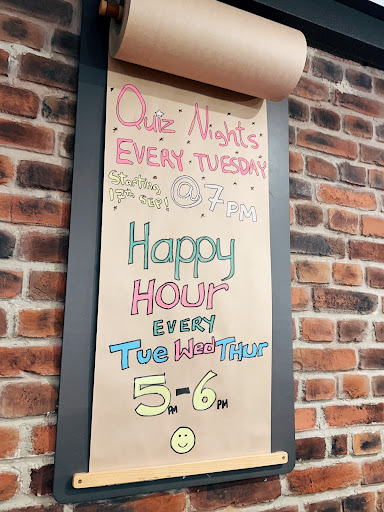 Quiz Nights
EVERY TUESDAY
Starting
17th SEP!
@ 7 PM
Happy
Hour
EVERY
Tue Wed Thur
5PM - 6PM